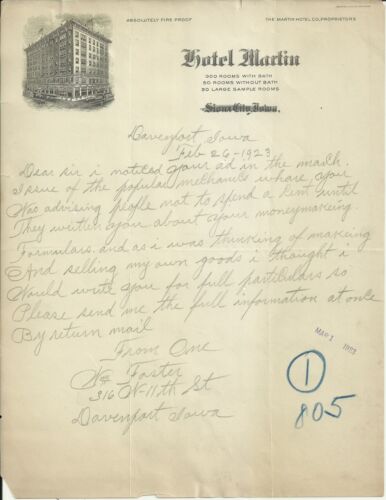 ABSOLUTELY FIRE PROOF
THE MARTIN HOTEL CO., PROPRIETORS
Hotel Martin
300 ROOMS WITH BATH
50 ROOMS WITHOUT BATH
50 LARGE SAMPLE ROOMS
Sioux City, Iowa.
Davenport Iowa
Feb 26-1923
Dear sir i noticed your ad in the march
Issue of the popular mechanics whare you
Was advising people not to spend a cent until
They written you about your moneymakeing
Formulars. and as i was thinking of makeing
And selling my own goods i thought i
Would write you for full particulars so
Please send me the full information at once
By return mail
From One
Wm Foster
316 W-11th St
Davenport Iowa
MAR 1 1923
1
805